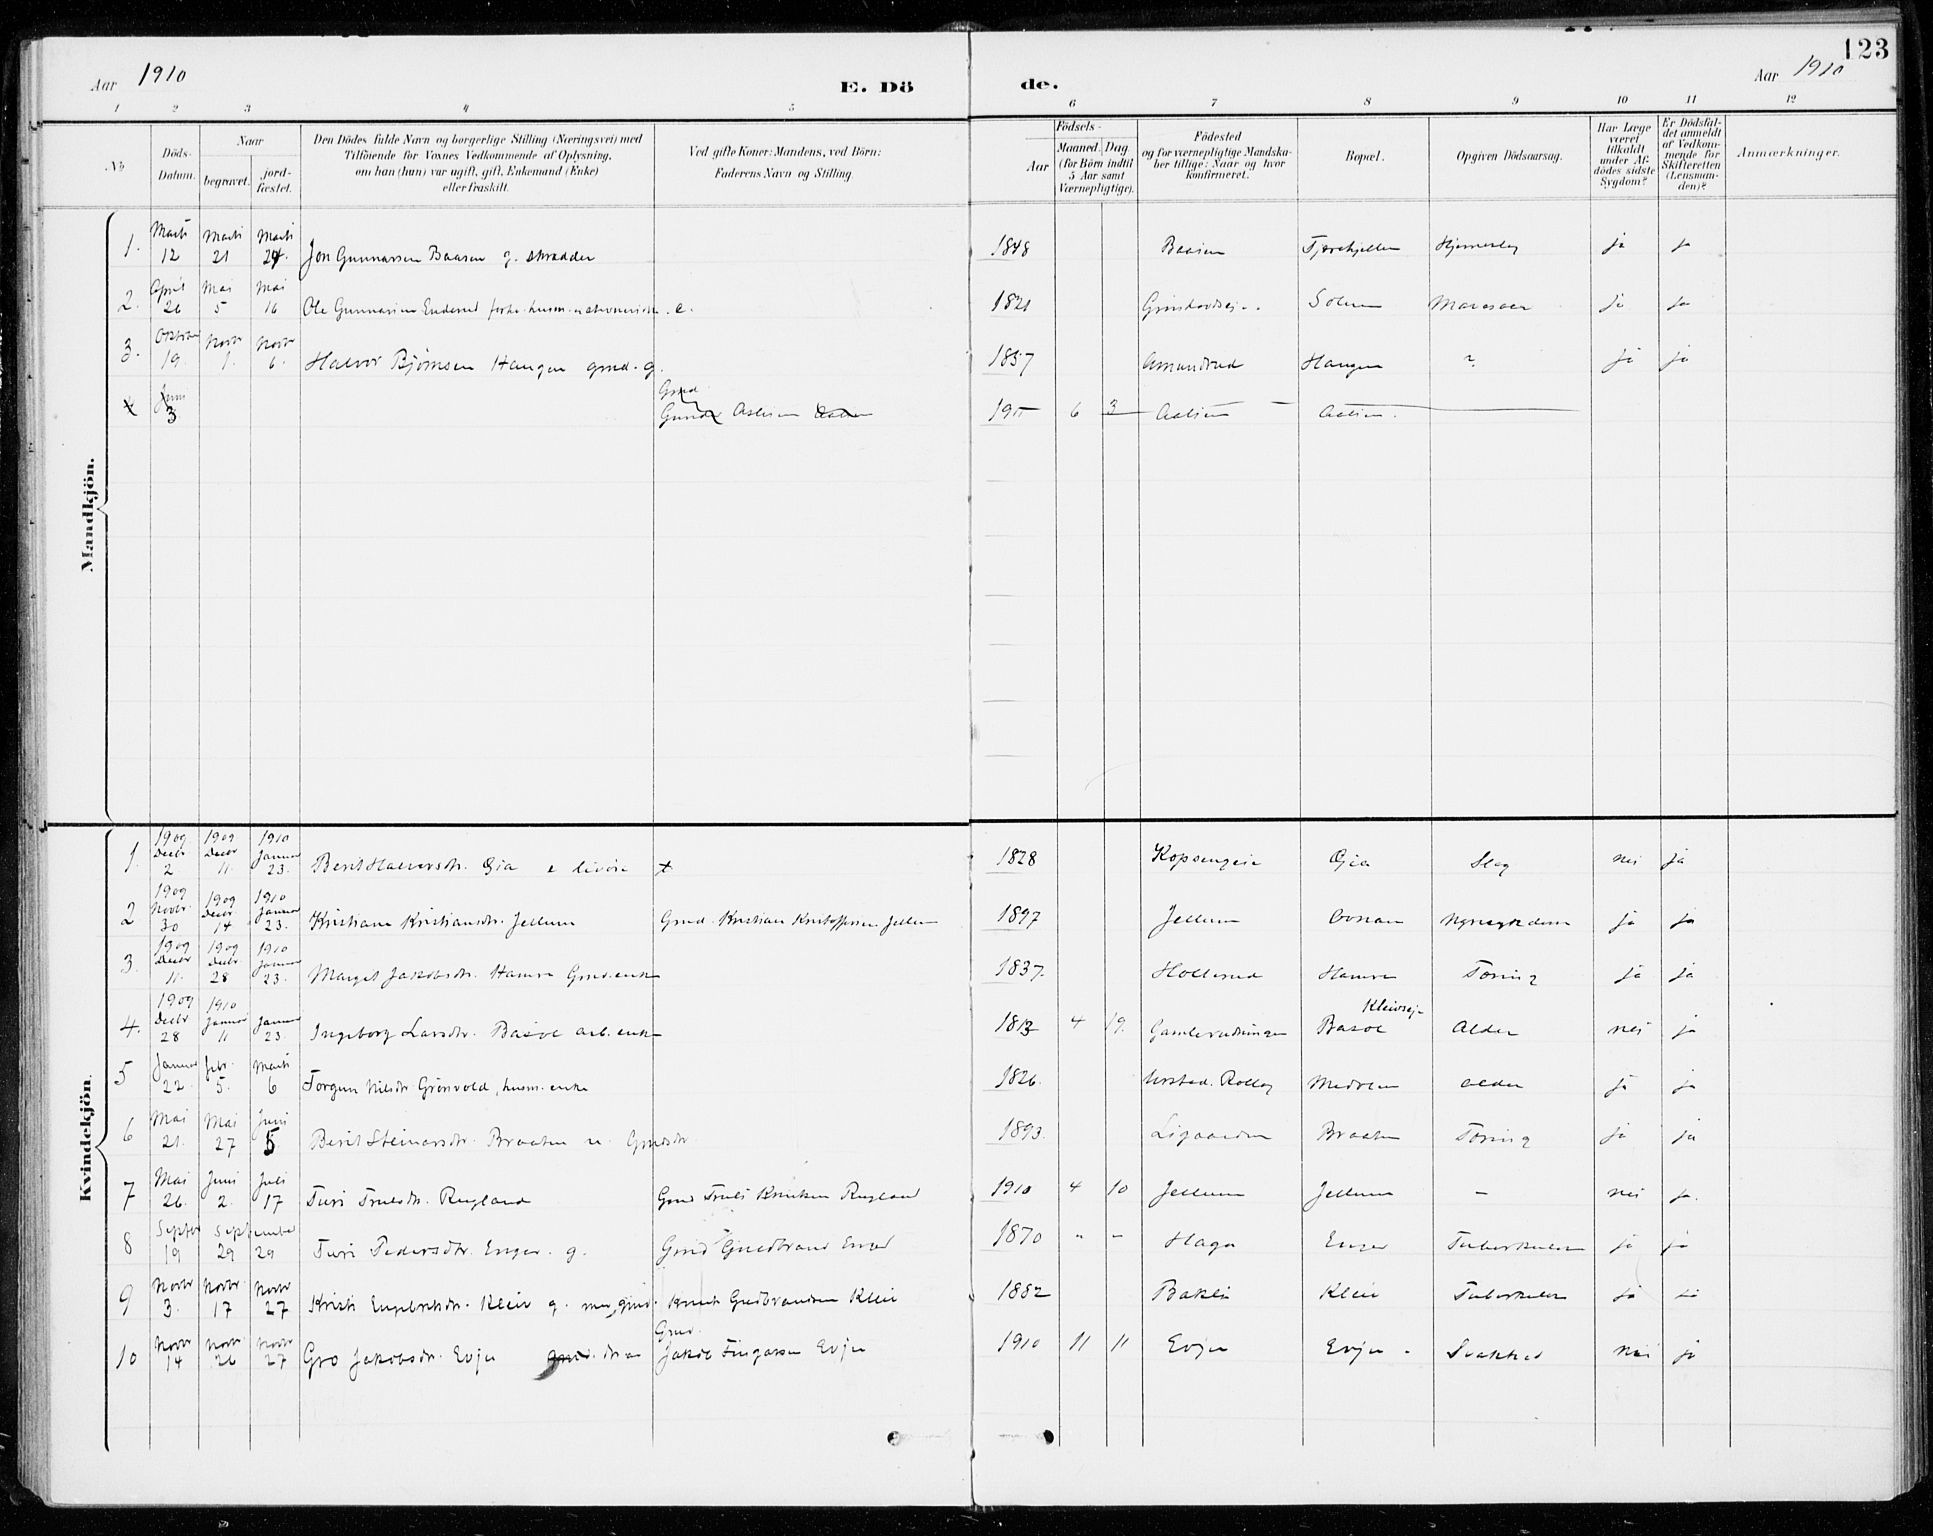 123
Aar 1910 E. Dö de. Aar 1910
1 2 3 4 5 6 7 8 9 10 11 12
No
Döds-Datum.
Naar
begravet.
jord-fæstet.
Den Dödes fulde Navn og borgerlige Stilling (Næringsvei) med
Tilföiende for Voxnes Vedkommende af Oplysning,
om han (hun) var ugift, gift, Enkemand (Enke)
eller fraskilt.
Ved gifte Koner: Mandens, ved Börn:
Faderens Navn og Stilling.
Födsels-
Aar
Maaned. Dag.
(for Börn indtil
5 Aar samt
Værnepligtige).
Födested
og for værnepligtige Mandska-
ber tillige: Naar og hvor
konfirmeret.
Bopæl.
Opgiven Dödsaarsag.
Har Læge
været
tilkaldt
under Af-
dödes sidste
Sygdom?
Er Dödsfal-
det anmeldt
af Vedkom-
mende for
Skifteretten
(Lensman-
den)?
Anmærkninger.
Mandkjön.
1. Marts 12 Marts 21 Marts 24. Jon Gunnarsen Baasen g. skrædder 1848 Baasen ja ja
2. April 26 Mai 5 Mai 16 Ole Gunnarsen Enderud e. 1821 Marasme ja ja
3. October 19. Novbr 1. Novbr 6. Halvor Bjørnsen Haugen grmd. g. 1857 Amundrud Haugen ? ja ja
4 Juni 3 Grmd. 6 3
Kvindekjön.
1. 1909 Decbr 2 1909 Decbr 11. 1910 Januar 23. Berit Halvorsdtr. Gia e 1828 Gia Slag nei ja
2 1909 Novbr. 30 1909 Decbr. 14 1910 Januar 23. Kristiane Kristiansdtr. Jellum Grmd. Kristian Kristoffersen Jellum 1897 Jellum Nyresygdom ja ja
3. 1909 Decbr 11. 1909 Decbr. 28 1910 Januar 23. Margit Jakobsdtr. Hamre Grmd.enke 1837. Hollerud Hamre Tæring ja ja
4. 1909 Decbr 28 1910 Januar 11 Januar 23. Ingeborg Larsdtr. Basoe arb.enke 1813 4 19. Basoe Alder nei ja
5 Januar 22. febr. 5. Marts 6 Torgun Nilsdtr Grönvold, husm.enke 1826. Alder ja ja
6 Mai 21. Mai 27 Juni 5 Berit Steinarsdtr. Braaten u. Grmdsdtr. 1893. Ligaarden Braaten Tæring ja ja
7 Mai 26. Juni 2. Juli 17 Turi Trulsdtr. Rugland Grmd Truls Knutsen Rugland 1910 4 10 Jellum Jellum — nei ja.
8 Septbr 19 September 29 29 Turi Pedersdtr. Enger. g. Grmd Gudbrand Enger 1870 " – Haga Enger Tuberkulose ja ja
9 Novbr 3. Novbr. 17 Novbr 27 Kristi Engebretsdtr. Kleiv g. med grmd. Knut Gudbrandsen Kleiv 1882 Bakli Kleiv Tuberkulose ja ja
10 Novbr 14 Novbr. 26 Novbr 27 Gro Jakobsdtr. Evju Grmd. Jakob Fingarsen Evju 1910 11 11 Evju Evju Svakhed nei ja